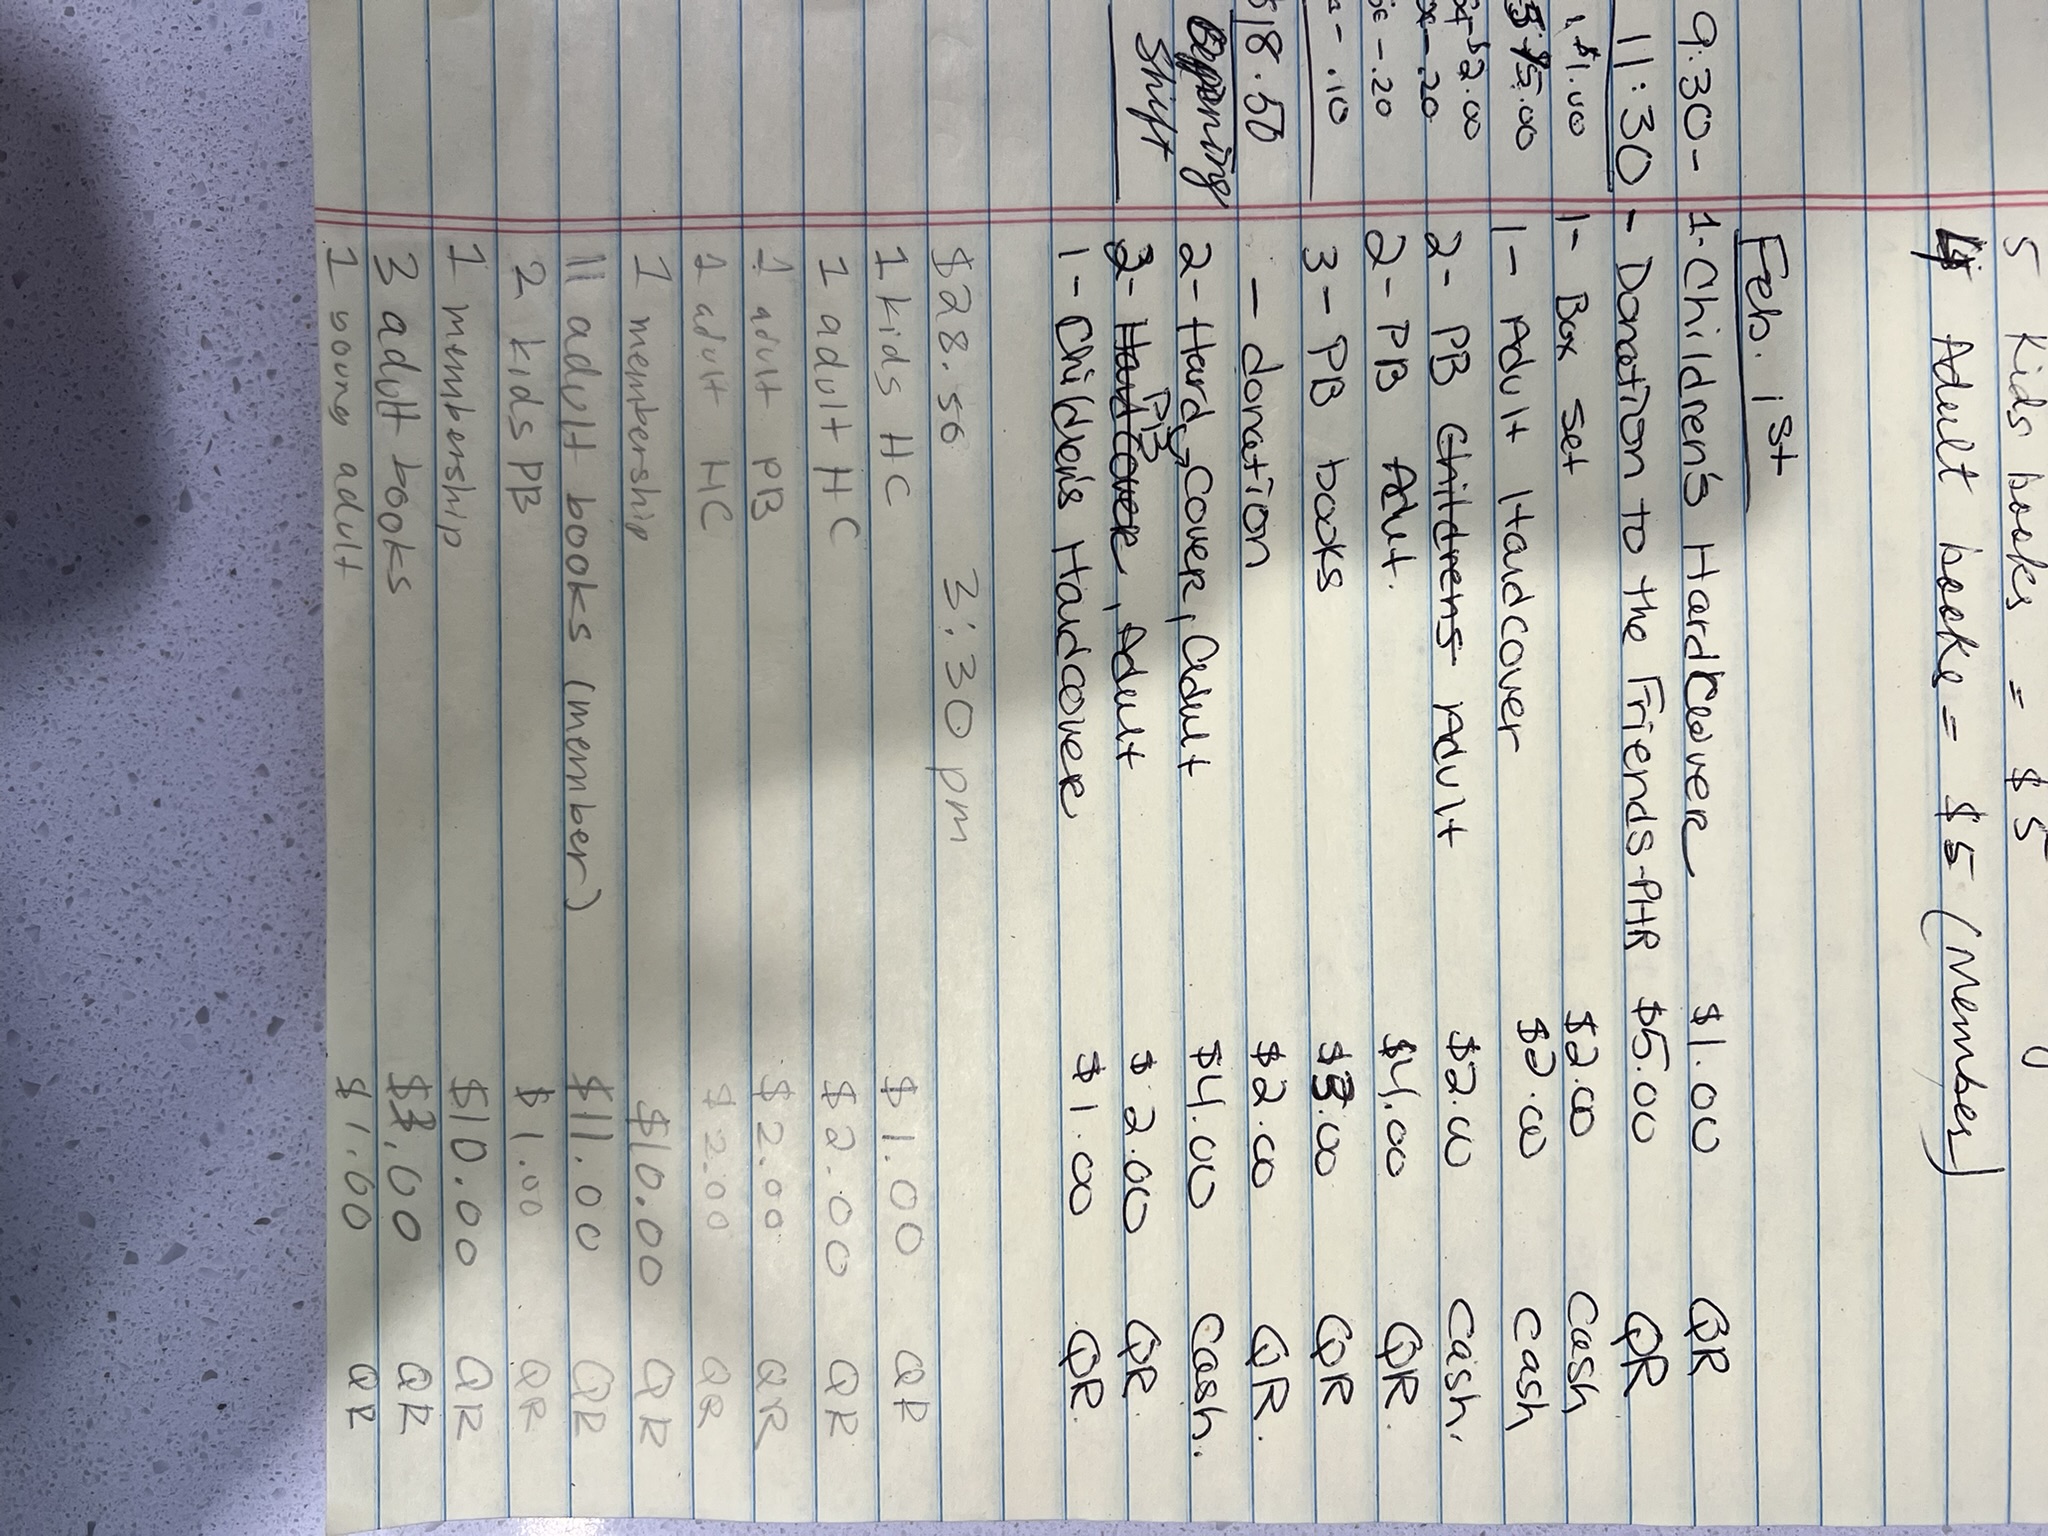 5 Kids books = $5
4 Adult books = $5 (member)
Feb. 1st
9:30- 1-Children's Hardcover $1.00 QR
11:30 - Donation to the Friends-PHR $5.00 QR
1, $1.00 1- Box set $2.00 Cash
$5.00 1- Adult Hardcover $2.00 Cash
$2.00 2- PB Childrens Adult $2.00 Cash.
-.20 2- PB Adut. $4.00 QR.
-.20 3- PB books $3.00 QR
-.10 - donation $2.00 QR.
$18.50 2- Hard Cover, adult $4.00 Cash.
Oppening 2- Hardcover PB, Adult $2.00 QR.
Shift 1- Childrens Hardcover $1.00 QR.
$28.50 3:30 pm
1 kids HC $1.00 QR
1 adult HC $2.00 QR
1 adult PB $2.00 QR
1 adult HC $2.00 QR
1 membership $10.00 QR
11 adult books (member) $11.00 QR
2 kids PB $1.00 QR
1 membership $10.00 QR
3 adult books $3.00 QR
1 young adult $1.00 QR